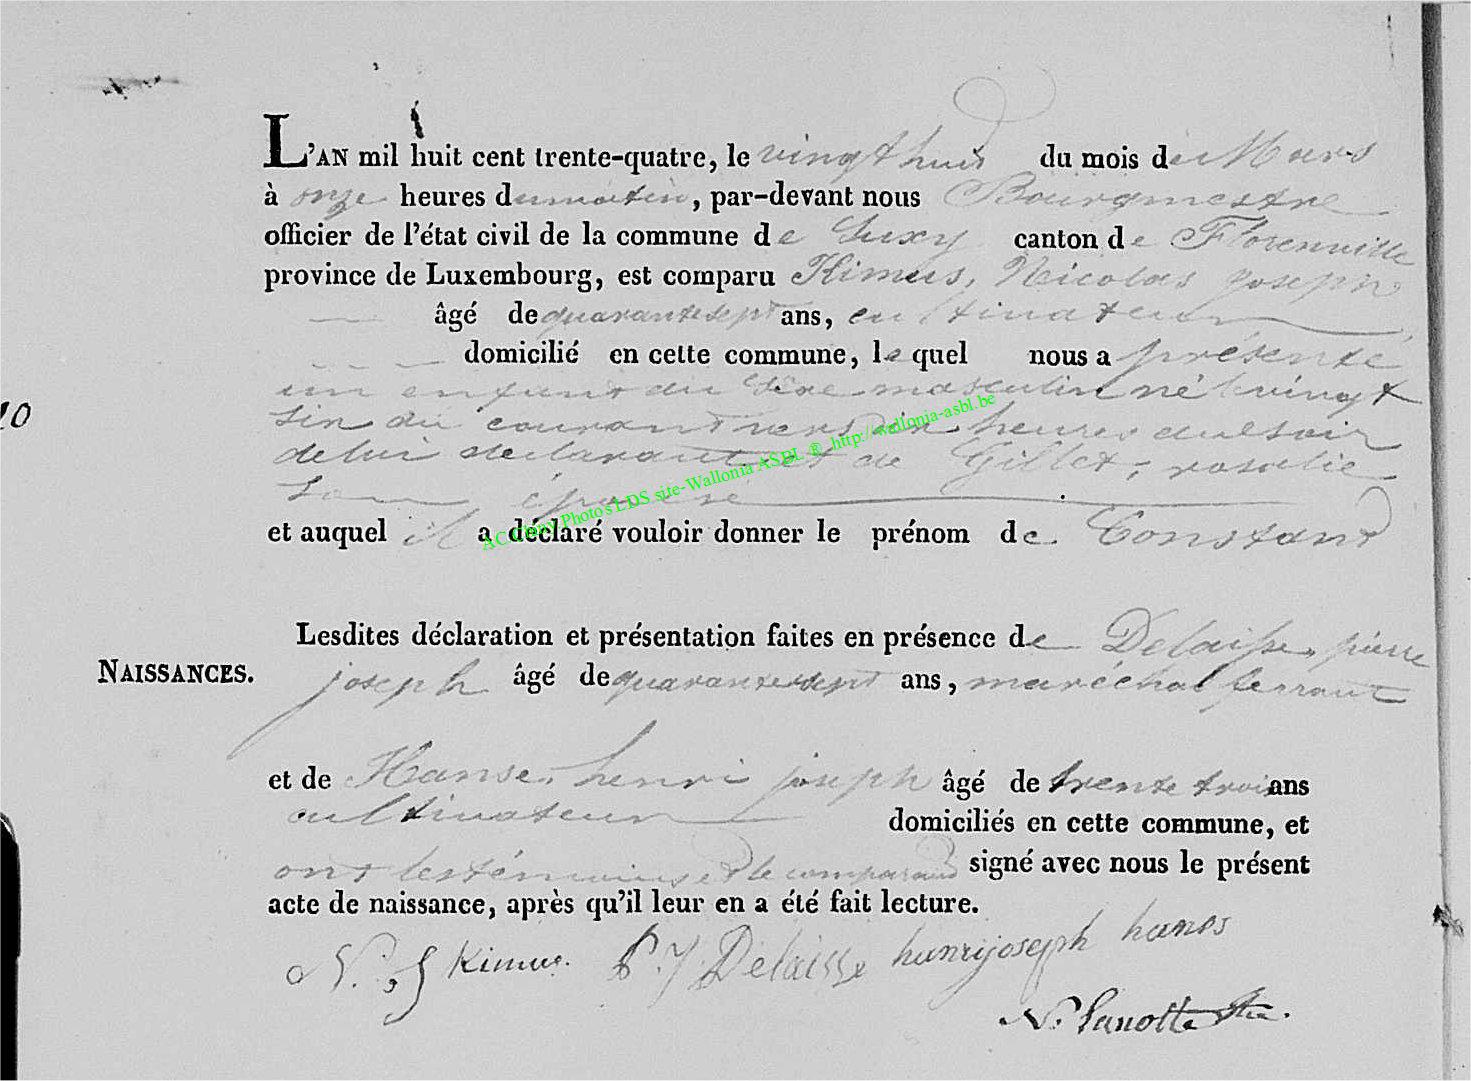 L'AN mil huit cent trente-quatre, le vingt huit du mois de Mars
à onze heures du matin, par-devant nous Bourgmestre
officier de l'état civil de la commune de Suxy canton de Florenville
province de Luxembourg, est comparu Kimus, Nicolas joseph
âgé de quarante sept ans, cultivateur
domicilié en cette commune, lequel nous a présenté
un enfant du sexe masculin né le vingt
10
six du courant vers six heures du soir
de lui déclarant et de Gillet, rosalie
son épouse
AC Chiny Photo's LDS site-Wallonia ASBL ® http://wallonia-asbl.be
et auquel il a déclaré vouloir donner le prénom de Constant
Lesdites déclaration et présentation faites en présence de Delaisse, pierre
NAISSANCES.
joseph âgé de quarante sept ans, maréchal ferrant
et de Hanse, henri joseph âgé de trente trois ans
cultivateur domiciliés en cette commune, et
ont les témoins et le comparant signé avec nous le présent
acte de naissance, après qu'il leur en a été fait lecture.
N. J Kimus. P. J Delaisse henrijoseph hanes
N. Lanotte